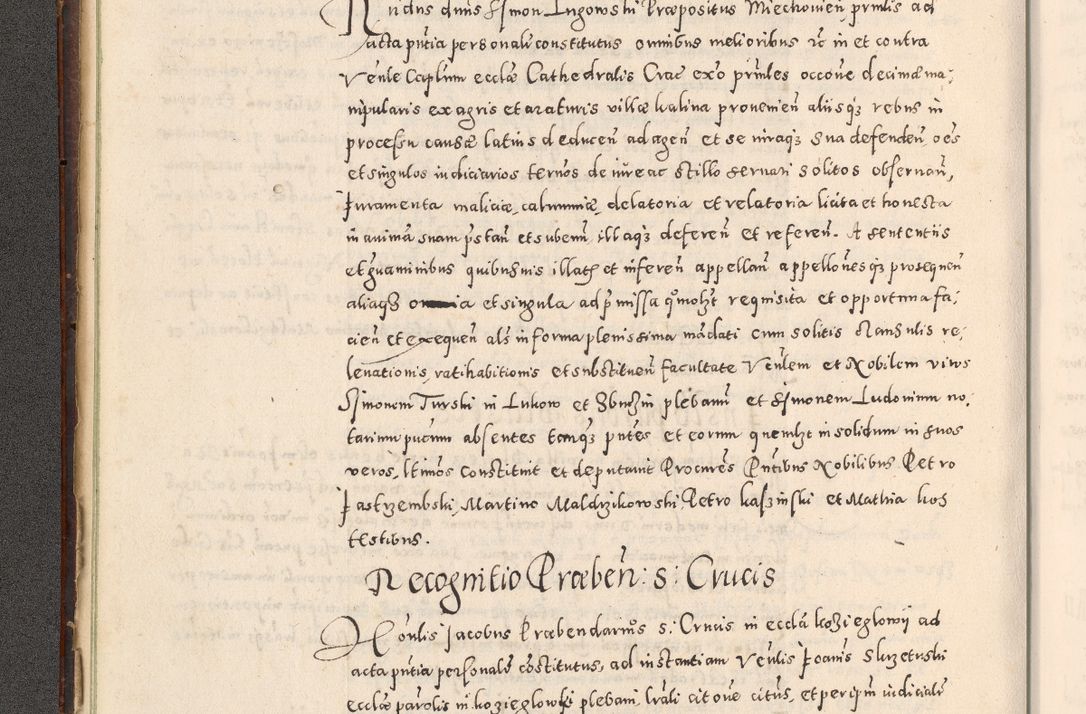 Rndus dnus Simon Lugowski Præpositus Miechovien̄ prnlis ad
acta pn̄tia personalr constitutus omnibus melioribus &c in et contra
Ven̄le Caplum eccłæ Cathedralis Crac̄ ex̄o prn̄les occōne decimæ ma,
nipularis ex agris et araturis villæ kalina provenien̄ aliisq3 rebus in
processu causæ latius deducen̄ ad agen̄ et se iuraq3 sua defenden̄ oēs
et singulos iudiciarios tern̄os de iure ac stillo servari solitos observan̄,
Juramenta maliciæ, calumniæ, delatoria et relatoria licita et honesta
in animā suam p̄stan̄ et subeun̄, illaq3 deferen̄ et referen̄. A sententiis
et gvaminibus quibusvis illatis et inferen̄ appellan̄ appellōnesq3 prosequen̄
aliaq3 omnia et singula ad p̄missa quomolzt requisita et opportuna fa,
cien̄ et exequen̄ als in forma plenissima mādati cum solitis clausulis re,
levationis, ratihabitionis et substituen̄ facultate Ven̄lem et Nobilem viros
Simonem Turski in Lukow et Zbuczin plebanū et Simonem Ludovicum no,
tarium pucum absentes tanq3 pn̄tes et eorum quemlzt in solidum in suos
veros, ltimos constituit et deputavit Procures Pn̄tibus Nobilibus Petro
Jastrzembski, Martino Maldrzikowski, Petro kaszinski et Mathia kos
testibus.
Recognitio Præben̄: s: Crucis
Honlis Jacobus Præbendarius s: Crucis in eccła kozieglowij ad
acta pn̄tia personalr cōstitutus, ad instantiam Ven̄lis Joanis Skrzetuski
eccłæ parolis in kozieglowki plebani, lrāli citōne citus, et peripm̄ iudicialr